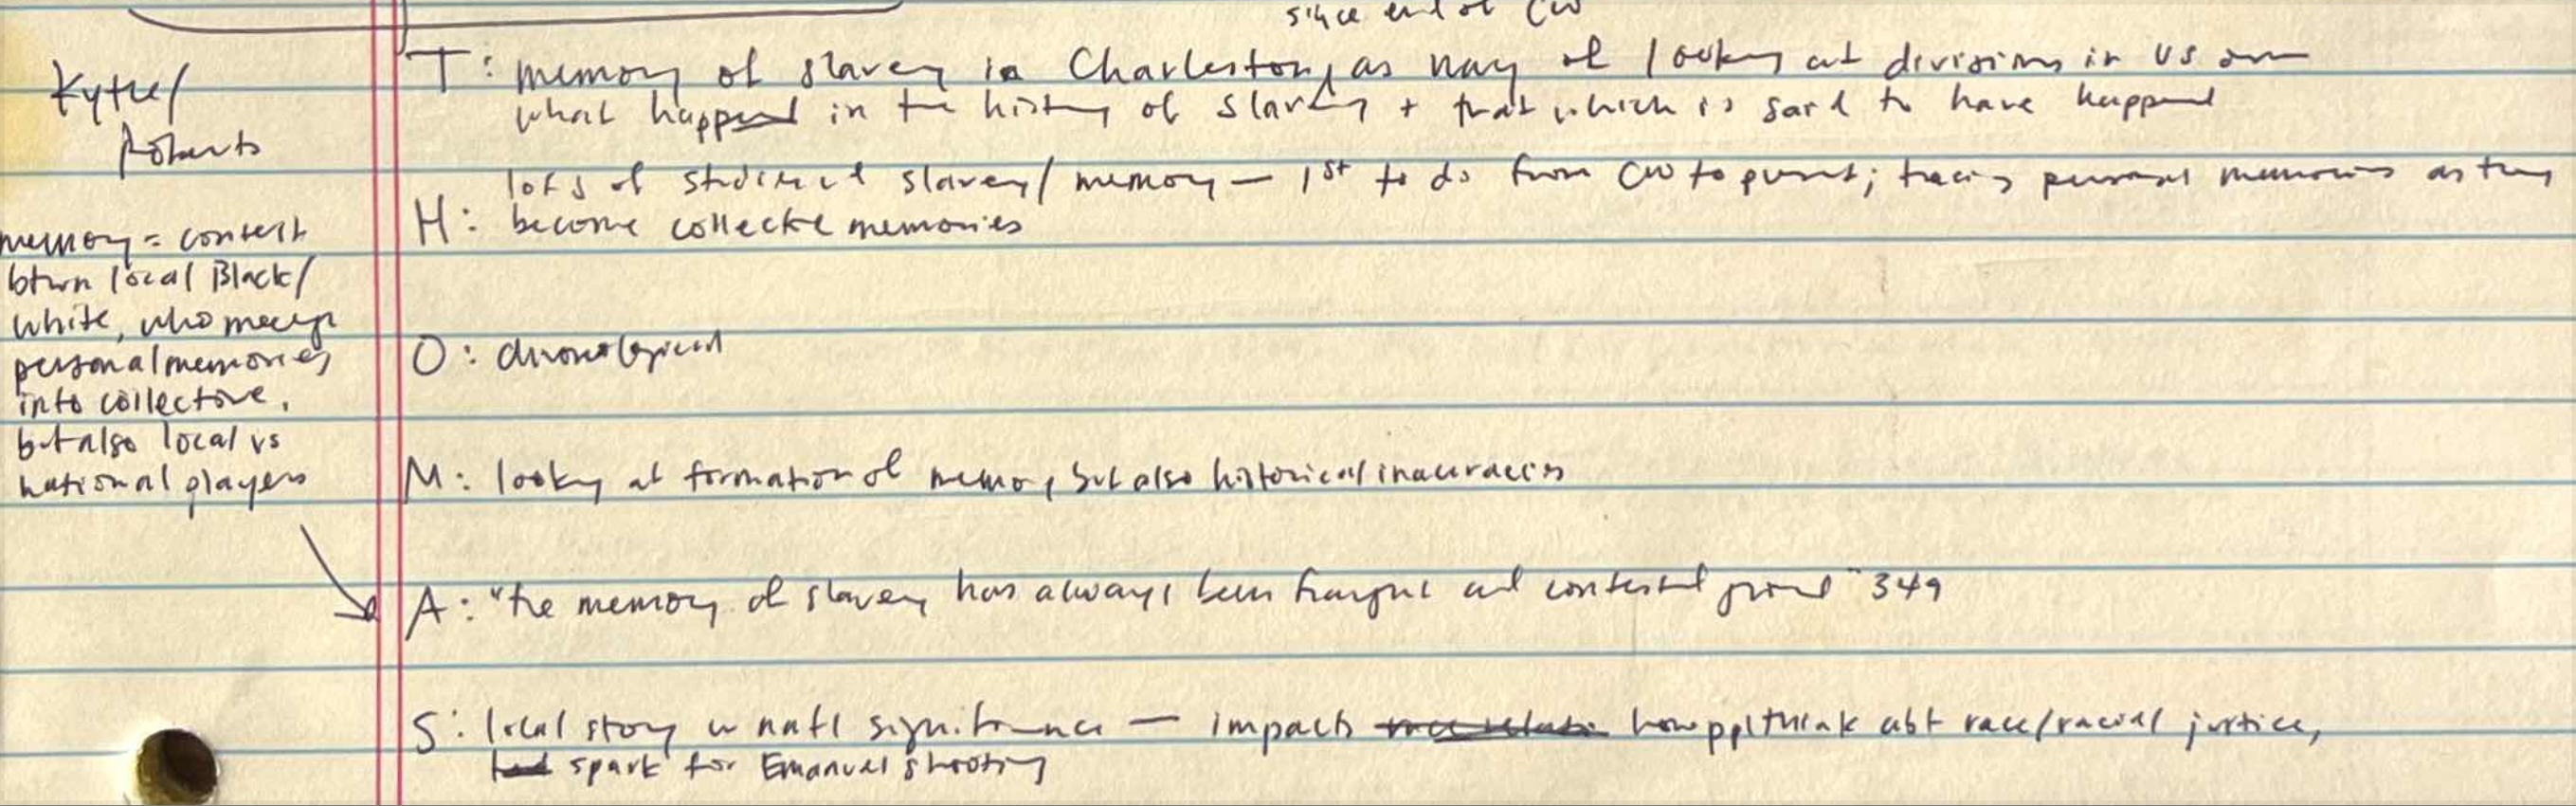 since end of CW
Kytle/
Roberts
T: memory of slavery in Charleston, as way of looking at divisions in US over
what happened in the history of slavery + that which is said to have happened
lots of studies of slavery/memory — 1st to do from CW to present; tracing personal memories as they
H: become collective memories
memory = contest
btwn local Black/
white, who merge
personal memories
into collective,
but also local vs
national players
O: chronological
M: looking at formation of memory, but also historical inaccuracies
A: "the memory of slavery has always been fraught and contested ground" 349
S: local story w natl significance — impacts how ppl think abt race/racial justice,
spark for Emanuel shooting